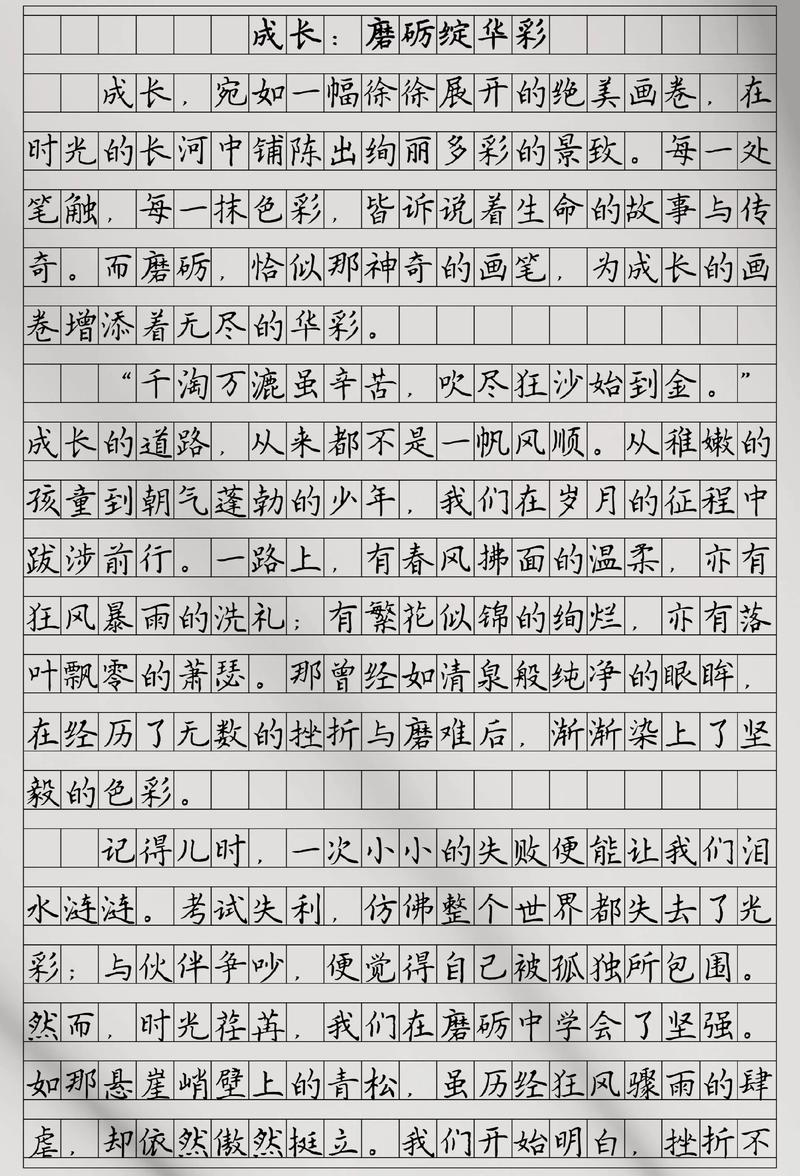 成长：磨砺绽华彩
成长，宛如一幅徐徐展开的绝美画卷，在
时光的长河中铺陈出绚丽多彩的景致。每一处
笔触，每一抹色彩，皆诉说着生命的故事与传
奇。而磨砺，恰似那神奇的画笔，为成长的画
卷增添着无尽的华彩。
“千淘万漉虽辛苦，吹尽狂沙始到金。”
成长的道路，从来都不是一帆风顺。从稚嫩的
孩童到朝气蓬勃的少年，我们在岁月的征程中
跋涉前行。一路上，有春风拂面的温柔，亦有
狂风暴雨的洗礼；有繁花似锦的绚烂，亦有落
叶飘零的萧瑟。那曾经如清泉般纯净的眼眸，
在经历了无数的挫折与磨难后，渐渐染上了坚
毅的色彩。
记得儿时，一次小小的失败便能让我们泪
水涟涟。考试失利，仿佛整个世界都失去了光
彩；与伙伴争吵，便觉得自己被孤独所包围。
然而，时光荏苒，我们在磨砺中学会了坚强。
如那悬崖峭壁上的青松，虽历经狂风骤雨的肆
虐，却依然傲然挺立。我们开始明白，挫折不